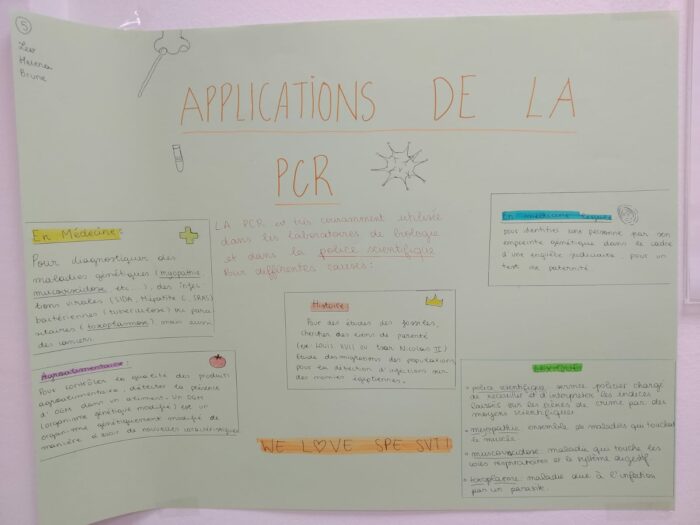 5
Leo
Helena
Brune
APPLICATIONS DE LA
PCR
LA PCR est très couramment utilisée
dans les laboratoires de biologie
et dans la police scientifique
Pour différentes causes :
En Médecine:
Pour diagnostiquer des
maladies génétiques (myopathie
mucoviscidose etc...), des infec-
tions virales (SIDA, Hépatite C, SRAS)
bactériennes (tuberculose) ou para-
sitaires (toxoplasmose), mais aussi
des cancers.
En médecine légale
pour identifier une personne par son
empreinte génétique dans le cadre
d'une enquête judiciaire, pour un
test de paternité
Histoire
Pour des études des fossiles,
chercher des liens de parenté
(ex: LOUIS XVII ou tsar Nicolas II)
Etude des migrations des populations
pour la détection d'infections sur
des momies égyptiennes.
Agroalimentaire:
Pour contrôler la qualité des produits
agroalimentaire, détecter la présence
d'OGM dans un aliment. Un OGM
(organisme génétique modifié) est un
organisme génétiquement modifié de
manière d'avoir de nouvelles caractéristiques
LEXIQUE
• police scientifique: service policier chargé
de recueillir et d'interpréter les indices
laissés sur les scènes de crime par des
moyens scientifiques
• myopathie: ensemble de maladies qui touchent
le muscle
• mucoviscidose: maladie qui touche les
voies respiratoires et le système digestif.
• toxoplasmose: maladie due à l'infection
par un parasite.
WE LOVE SPE SVT!